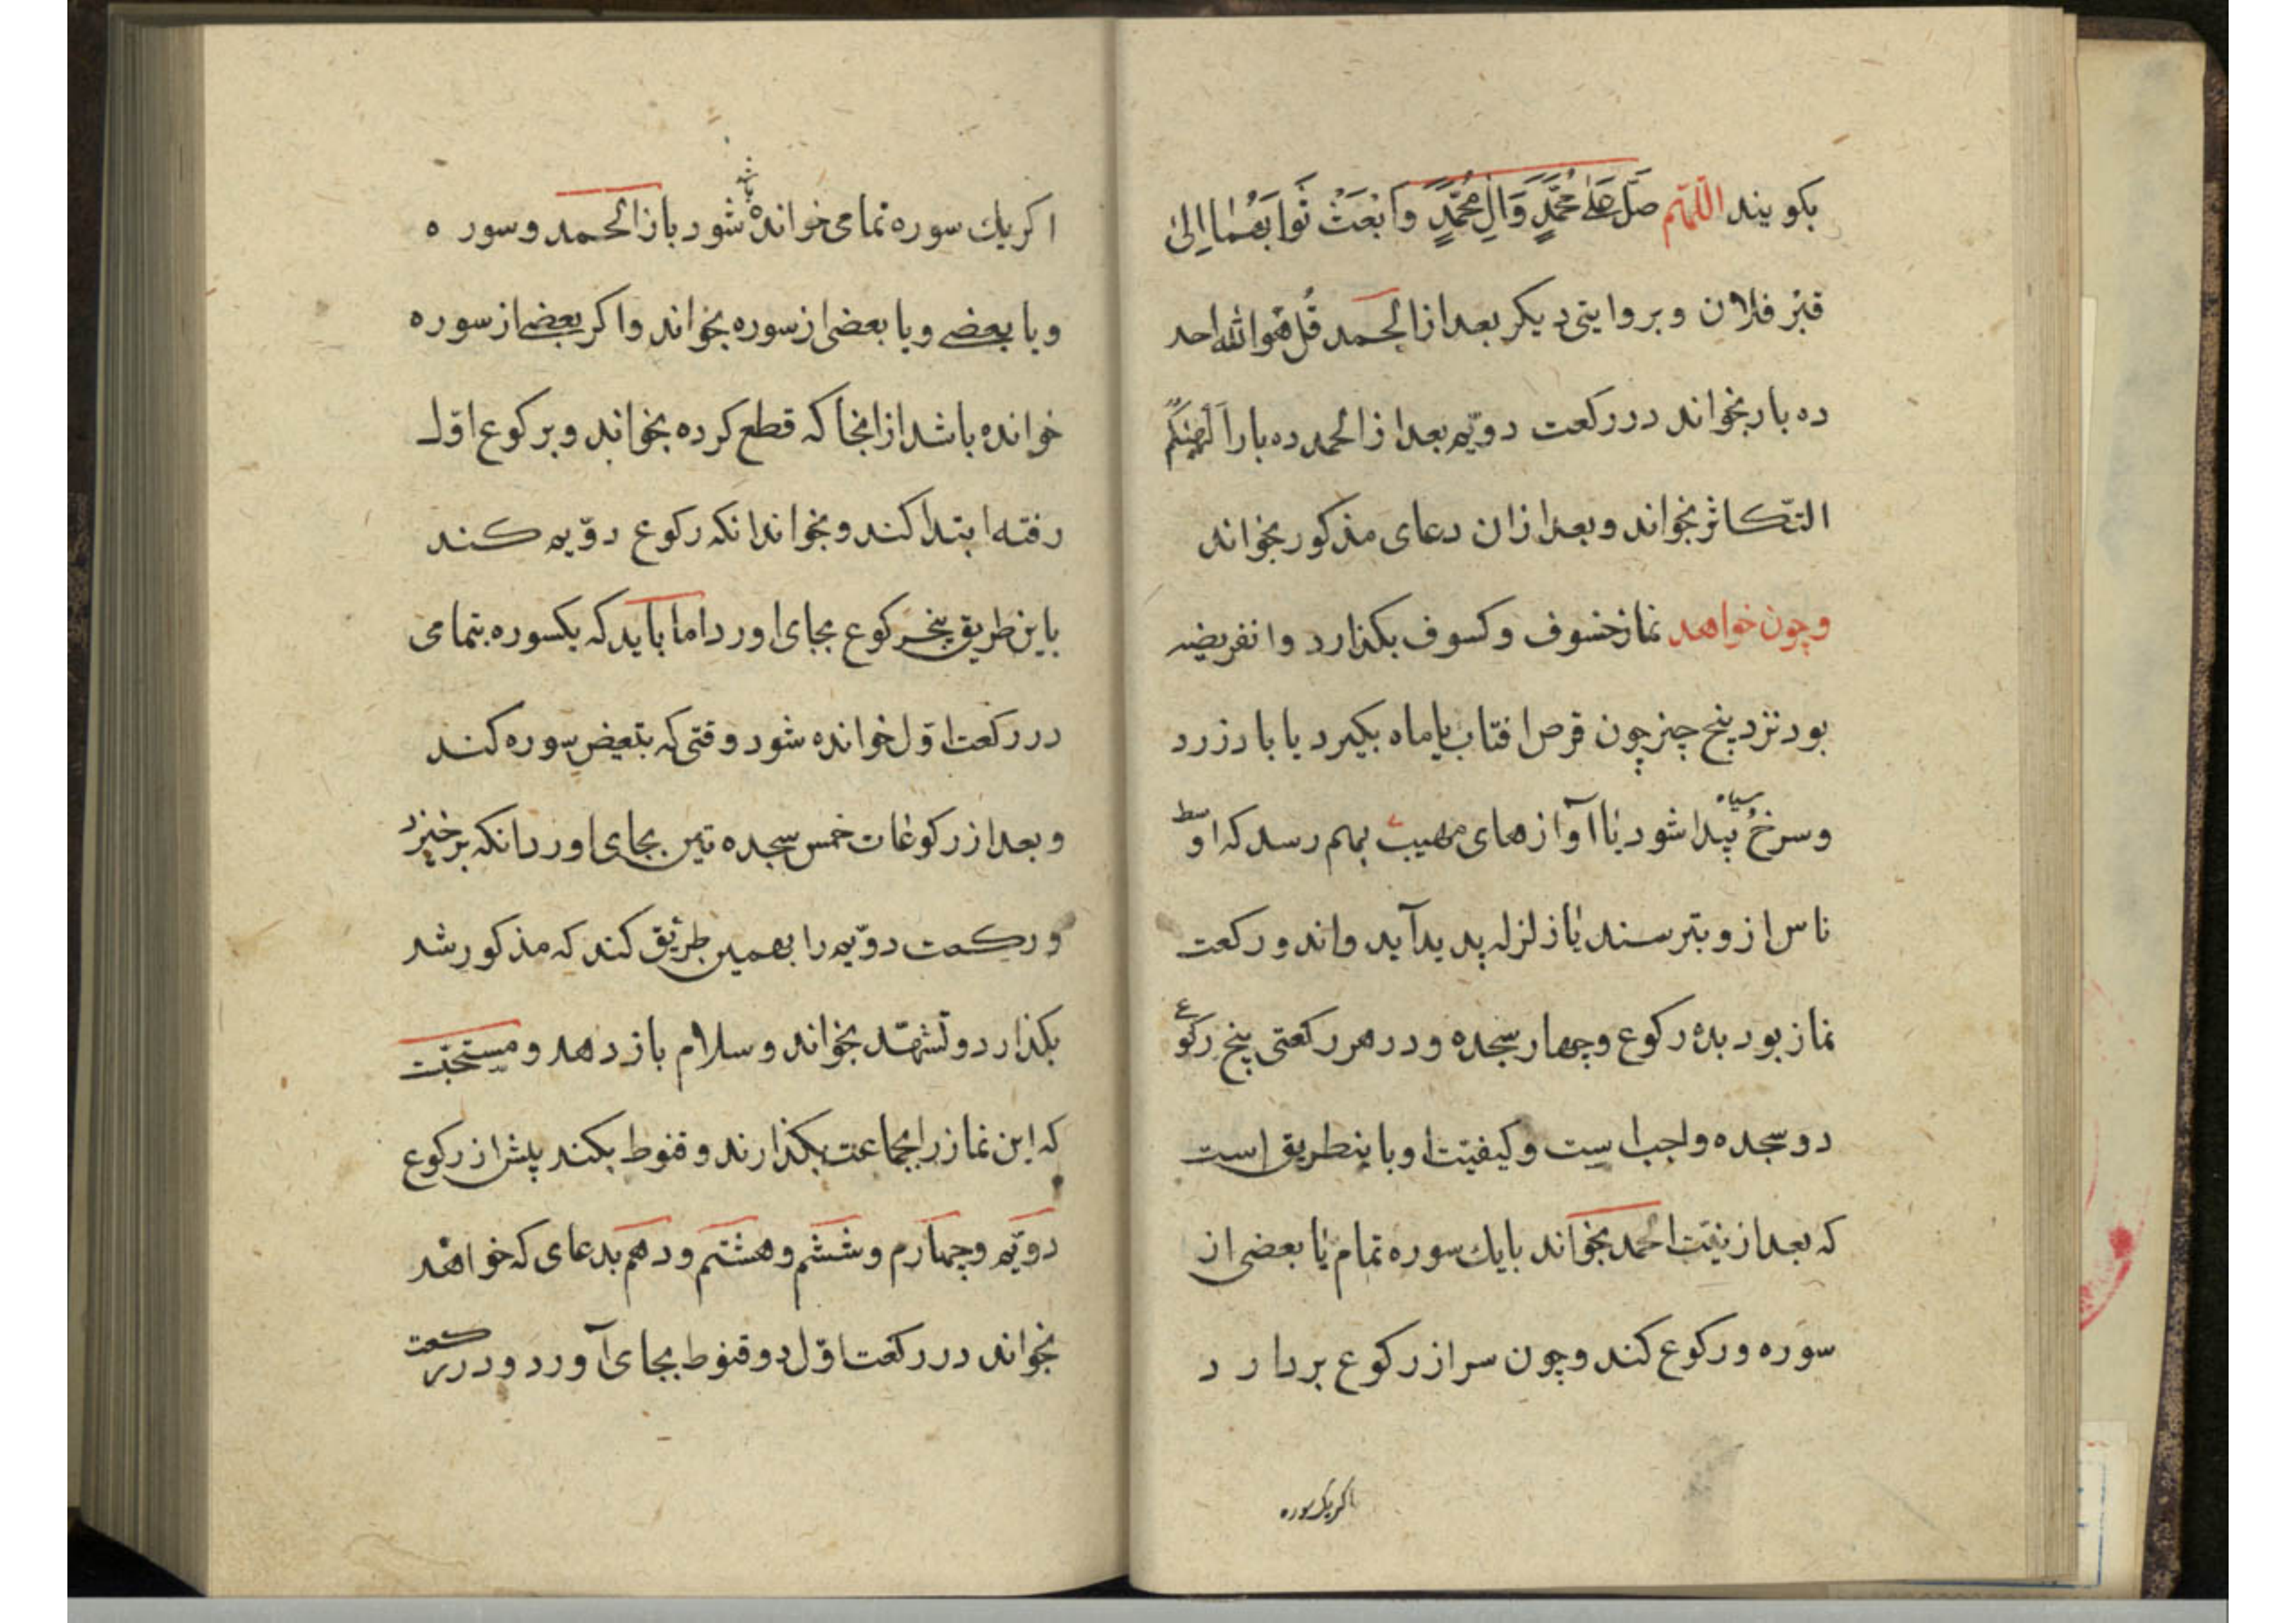 بکویند اللّهمّ صَلّ عَلیٰ مُحَمَّدٍ وَالِ مُحَمَّدٍ وَابْعَثْ ثَوابَهُمٰا اِلیٰ
قبْر فلان وبروایتی دیکر بعد از الحمد قُل هُوَ اللّه احد
ده بار بخواند در رکعت دویّم بعد از الحمد ده بار اَلْهٰیکُم
التّکاثر بخواند وبعد ازان دعای مذکور بخواند
وچون خواهد نماز خسوف وکسوف بکذارد وانفریضه
بود نزد پنج چیز چون قرص افتاب یا ماه بکیرد یا باد زرد
وسرخُ سیاه پیدا شود یا آوازهای مهیب بهم رسد که اوسط
ناس از و بترسند یا زلزله پدید آید واند ورکعت
نماز بود بده رکوع وچهار سجده ودر هر رکعتی پنج رکوع
دو سجده واجب است وکیفیّت او باینطریق است
که بعد از نیّت الحمد بخواند بایك سوره تمام یا بعضی از
سوره ورکوع کند وچون سر از رکوع بردارد
اکر یك سوره
اکر یك سوره تمامی خوانده باشد شود باز الحمد وسوره
ویا بعضی ویا بعضی از سوره بخواند واکر بعضی از سوره
خوانده باشد از انجا که قطع کرده بخواند وبرکوع اوّل
رفته ابتدا کند وبخواند انکه رکوع دوّیم کند
باین طریق پنج رکوع بجای اورد اما باید که یکسوره بتمامی
در رکعت اوّل خوانده شود وقتی که بتعیض سوره کند
وبعد از رکوعات خمس سجده تین بجای اورد انکه برخیزد
ورکعت دوّیم را بهمین طریق کند که مذکور شد
بکذارد وتشهّد بخواند وسلام باز دهد ومستحبّت
که این نماز را بجماعت بکذارند وقنوط بکند پیش از رکوع
دویّم وچهارم وششم وهشتم ودهم بدعای که خواهد
بخواند در رکعت اوّل دو قنوط بجای آورد ودر رکعت